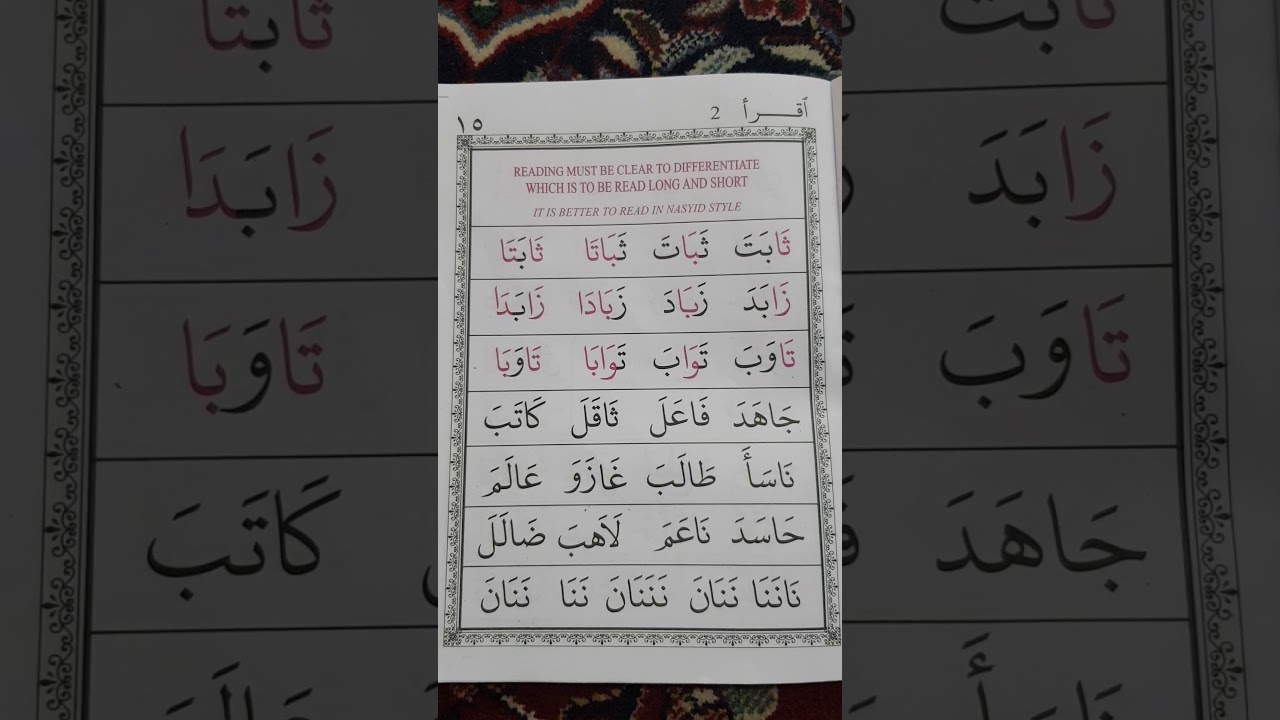 اقرأ 2
١٥
READING MUST BE CLEAR TO DIFFERENTIATE
WHICH IS TO BE READ LONG AND SHORT
IT IS BETTER TO READ IN NASYID STYLE
ثَابَتَ ثَبَاتَ ثَبَاتَا ثَابَتَا
زَابَدَ زَبَادَ زَبَادَا زَابَدَا
تَاوَبَ تَوَابَ تَوَابَا تَاوَبَا
جَاهَدَ فَاعَلَ ثَاقَلَ كَاتَبَ
نَاسَأَ طَالَبَ غَازَوَ عَالَمَ
حَاسَدَ نَاعَمَ لَاهَبَ ضَالَلَ
نَانَنَا نَنَانَ نَنَنَانَ نَنَا نَنَانَ